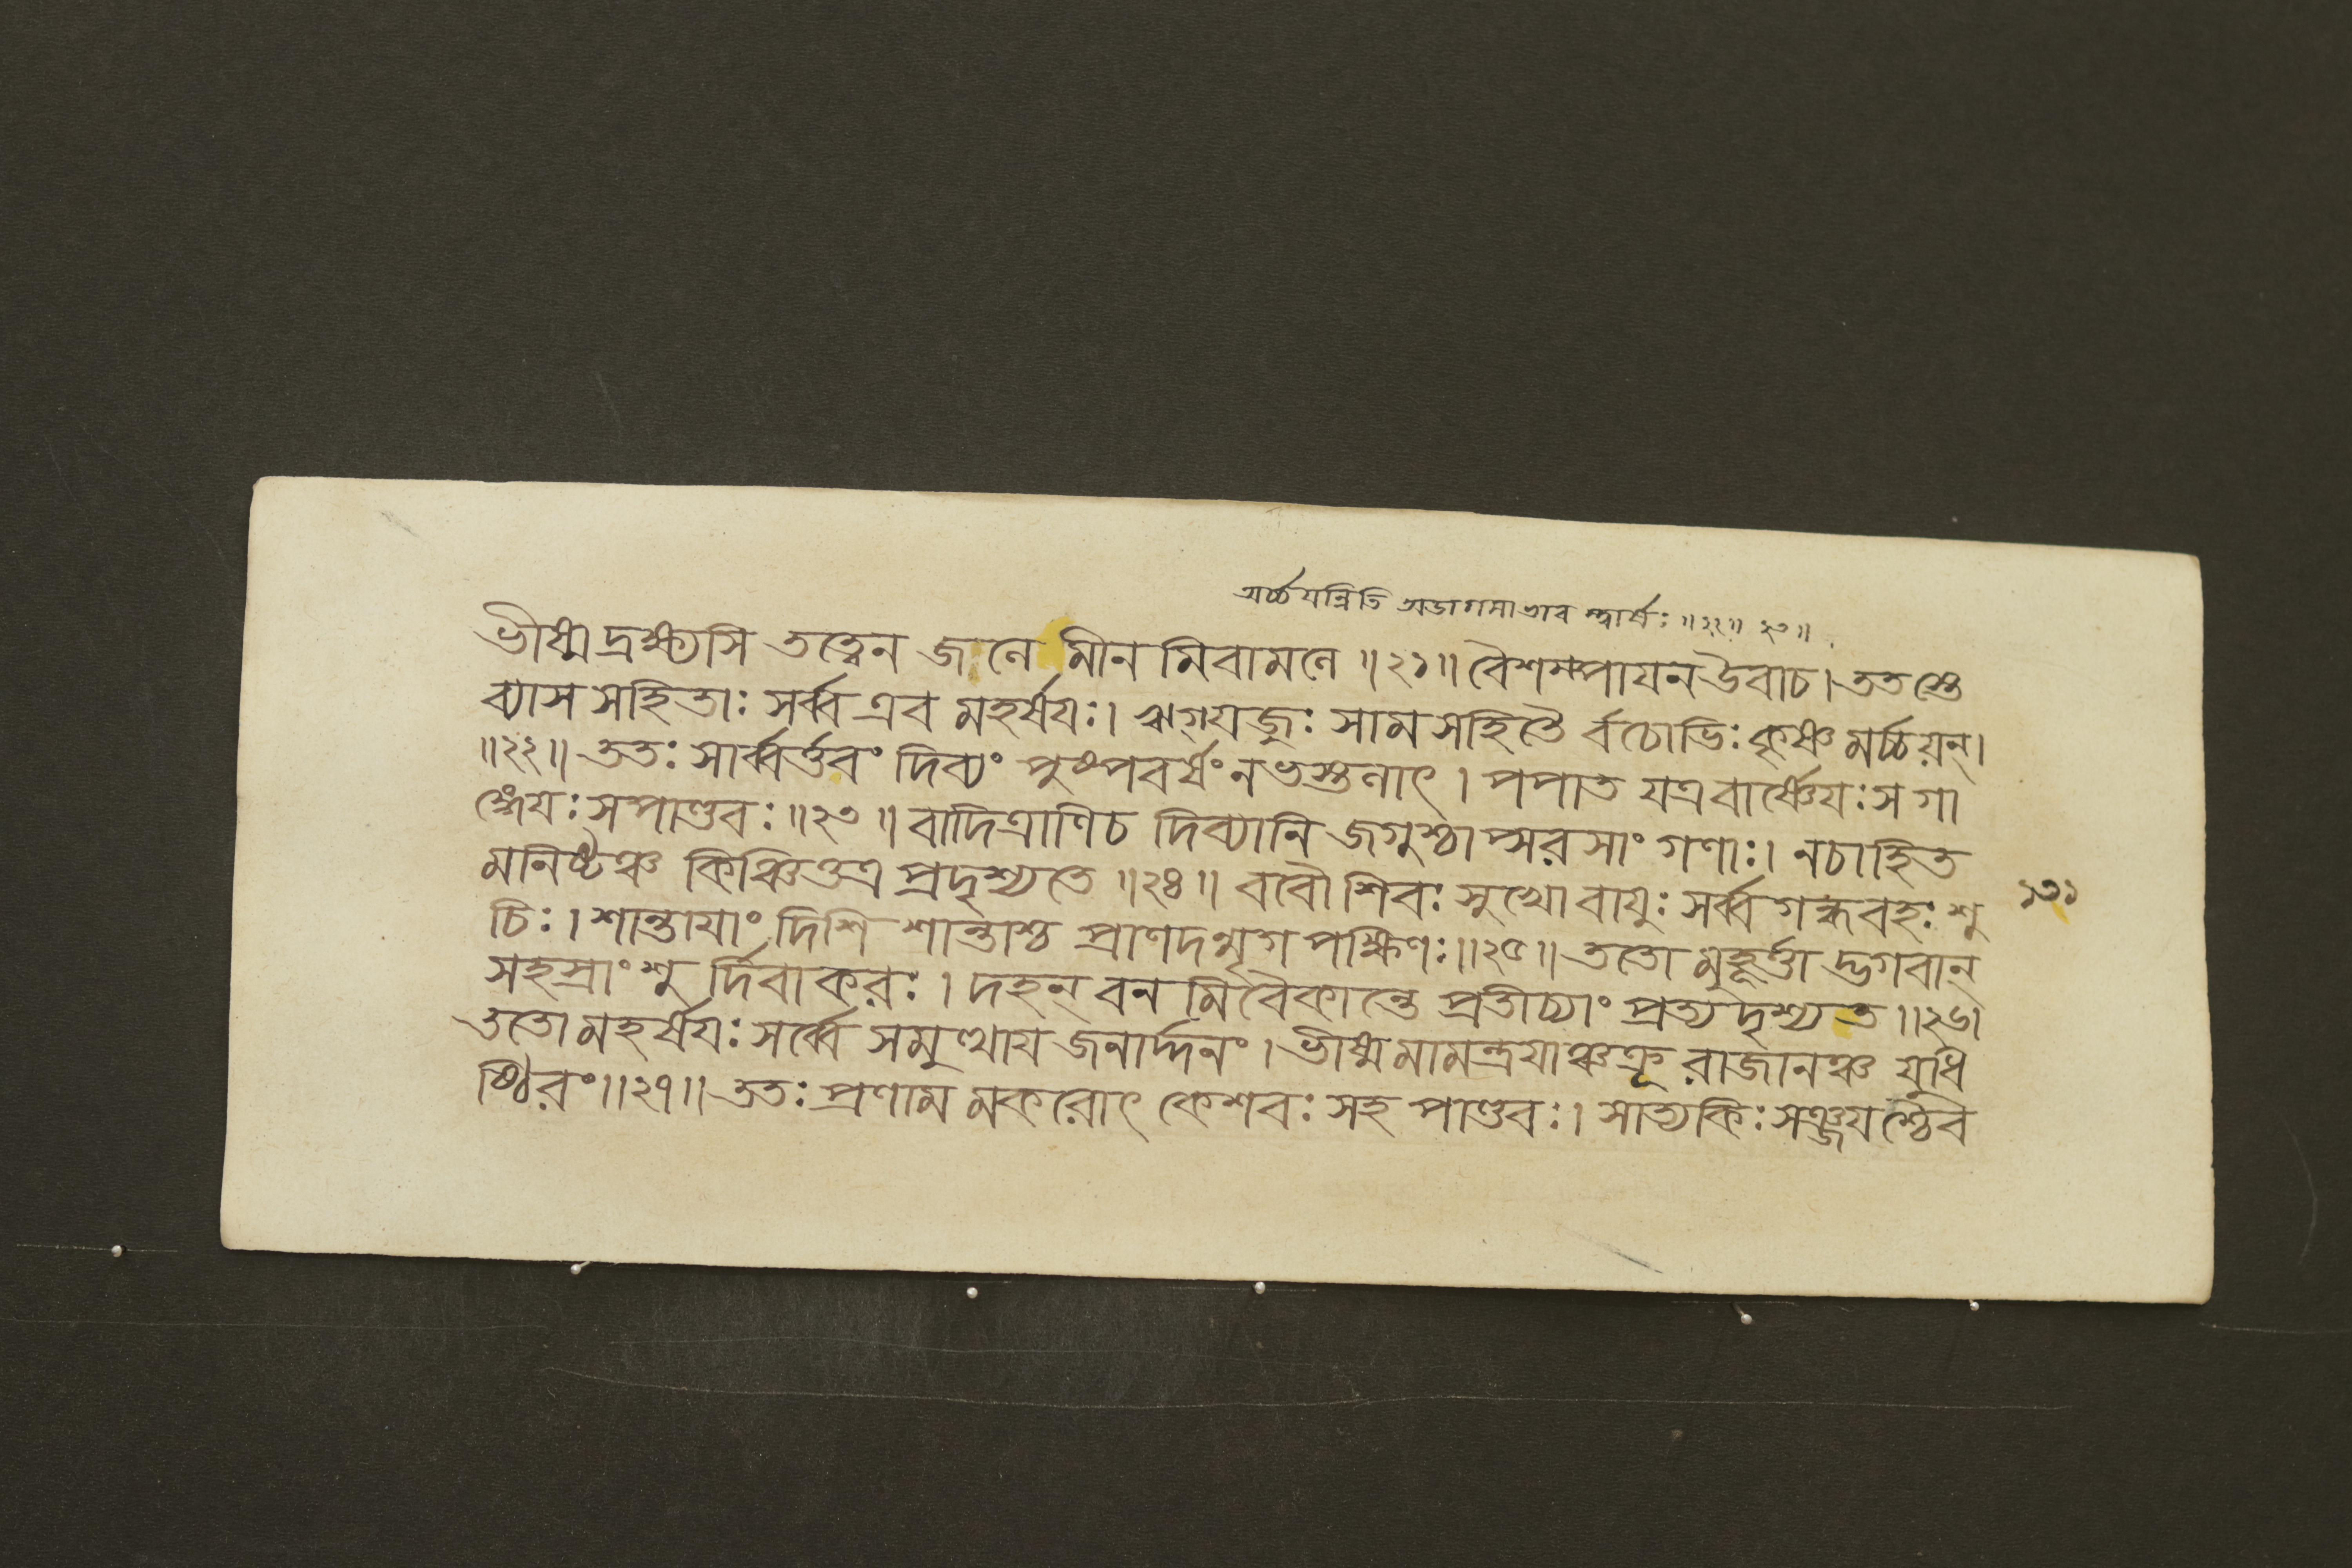 অর্চ্চয়ন্নিতি অডাগমাভাব স্বার্ষঃ ॥২২॥ ২৩॥
ভীষ্ম দ্রক্ষ্যসি তত্ত্বেন জলে মীন মিবামলে ॥২১॥ বৈশম্পায়ন উবাচ। ততস্তে
ব্যাস সহিতাঃ সর্ব্ব এব মহর্ষয়ঃ। ঋগ্যজুঃ সাম সহিতৈ র্বচোভিঃ কৃষ্ণ মর্চ্চয়ন্।
॥২২॥ ততঃ সার্ব্বর্ত্তবং দিব্যং পুষ্পবর্ষং নভস্তলাৎ। পপাত যত্র বার্ষ্ণেয়ঃ স গা
ঙ্গেয়ঃ সপাণ্ডবঃ ॥২৩॥ বাদিত্রাণি চ দিব্যানি জগুশ্চাপ্সরসাং গণাঃ। ন চাহিত
মনিষ্টঞ্চ কিঞ্চিত্তত্র প্রদৃশ্যতে ॥২৪॥ ববৌ শিবঃ সুখো বায়ুঃ সর্ব্বগন্ধবহঃ শু
১৩১
চিঃ। শান্তায়াং দিশি শান্তাশ্চ প্রাণদন্মৃগ পক্ষিণঃ ॥২৫॥ ততো মুহূর্ত্তা দ্ভগবান্
সহস্রাংশু র্দিবাকরঃ। দহন্ বন মিবৈকান্তে প্রতীচ্যাং প্রত্যদৃশ্যত ॥২৬।
ততো মহর্ষয়ঃ সর্ব্বে সমুত্থায় জনার্দ্দনং। ভীষ্ম মামন্ত্রয়াঞ্চক্রূ রাজানঞ্চ যুধি
ষ্ঠিরং ॥২৭॥ ততঃ প্রণাম মকরোৎ কেশবঃ সহ পাণ্ডবঃ। সাত্যকিঃ সঞ্জয়শ্চৈব